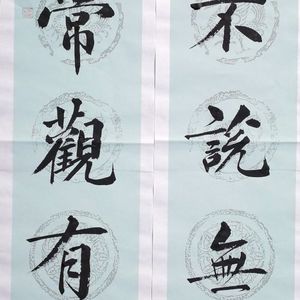 不說無
常觀有